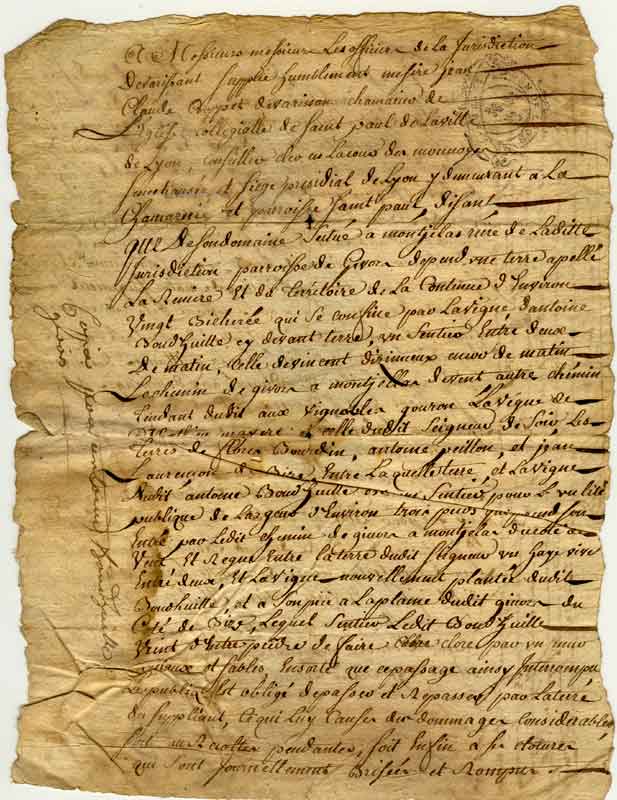 A Messieurs messieurs Les officiers de La Jurisdiction
Devarissant Supplie humblement messire jean
Claude devarissan chamarier de
L'Eglise Collegialle de Saint paul de Laville
de Lyon, Conseiller clerc en Lacour des monnoyes
Senechaussee et Siege presidial de Lyon y demeurant a La
Chamarerie et parroisse Saint paul disant
QUE desondomaine Scitué a montgelas riere de Laditte
Jurisdiction parroisse de Givors depend une terre apellé
La Remire Et du territoire de La Contenue d'Environ
Vingt Bicherée qui Se confine par Lavigne dantoine
Boudhuille cy devant terre, un Sentier Entre deux
De matin, Celle devincent encor de matin
Lechemin de givors a montgellas devent autre chemin
tendant dudit aux vignobles gouron Lavigne de
et celle dudit Seigneur de Soir Les
terres de fleury Bourdin, antoine peillon, et jean
Laurencon de Bize, Entre Laquelle terre, et Lavigne
dudit antoine Boudhuille Sentier pour L'utilité
publique de Largeur d'Environ trois pieds qui prend Son
Entré par Ledit chemin de givors a montgelas ducoté de
Vent Et Regne Entre laterre dudit Seigneur une haye vive
Entre deux, Et Lavigne nouvellement plantée dudit
Boudhuille, et a Sonpiie a Laplaine dudit givors du
Coté de Bize, Lequel Sentier Ledit Boudhuille
Vient d'Entreprendre de faire clore par un mur
et Sables Ensorte que cepassage ainsy Interrompu
Lepublic Est obligé depasser et Repasser par Laterre
du Suppliant, Cequi Luy Cause des dommages considerables
Soit en Recoltes pendantes, Soit Enfin a Ses clotures
qui Sont journellement Brisées et Rompues
Copie pour antoine Boudhuille
givors